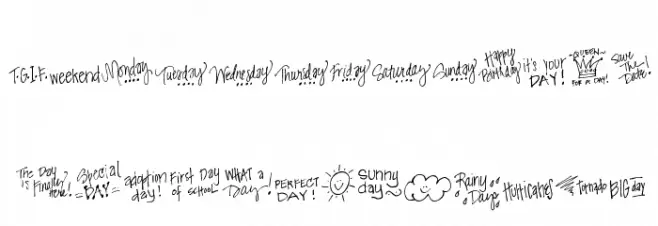 T.G.I.F. weekend Monday Tuesday Wednesday Thursday Friday Saturday Sunday Happy Birthday it's YOUR DAY! QUEEN FOR A DAY! Save The Date!
The Day is Finally Here! Special DAY adoption day! First Day of school WHAT a Day! PERFECT DAY! sunny day Rainy Days Hurricanes tornado BIG day